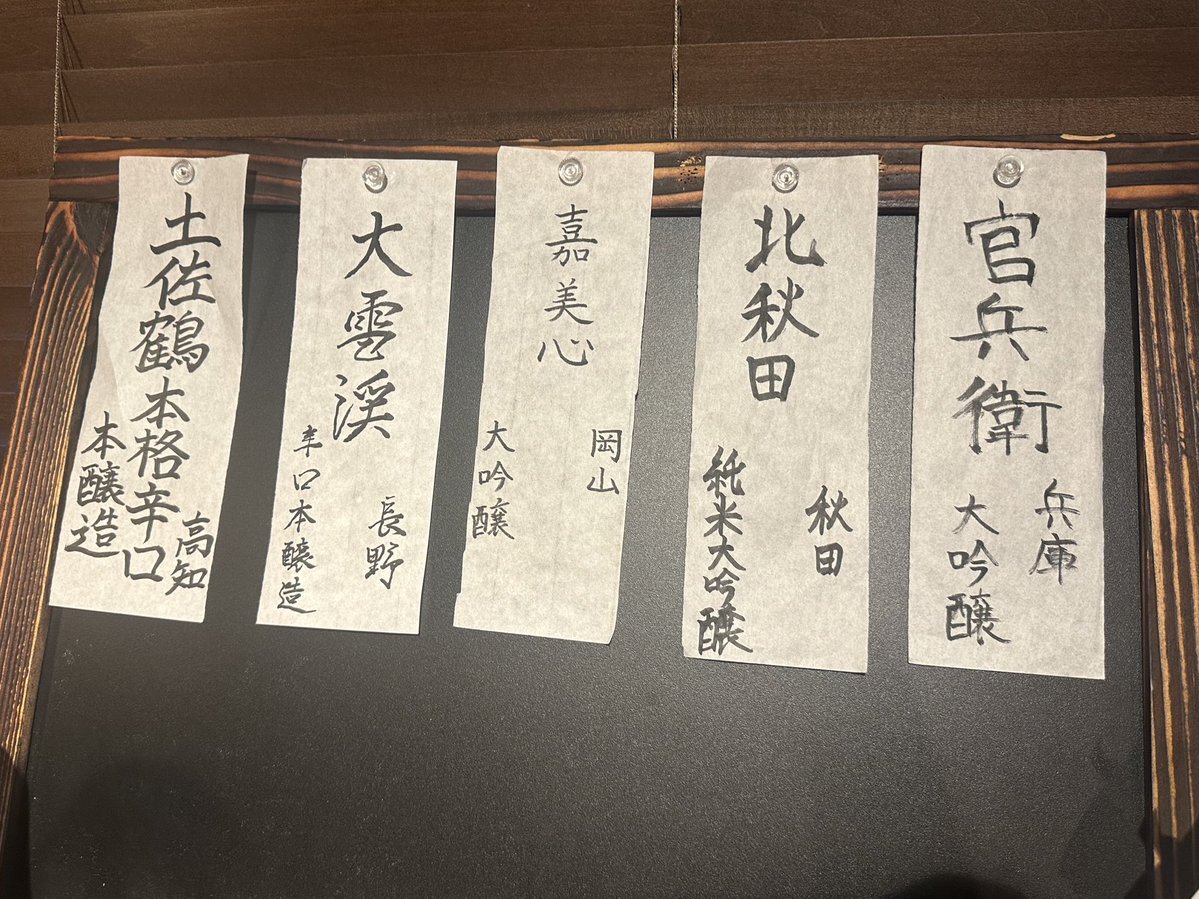 官兵衛
兵庫
大吟醸
北秋田
秋田
純米大吟醸
嘉美心
岡山
大吟醸
大雪渓
長野
辛口本醸造
土佐鶴本格辛口
高知
本醸造